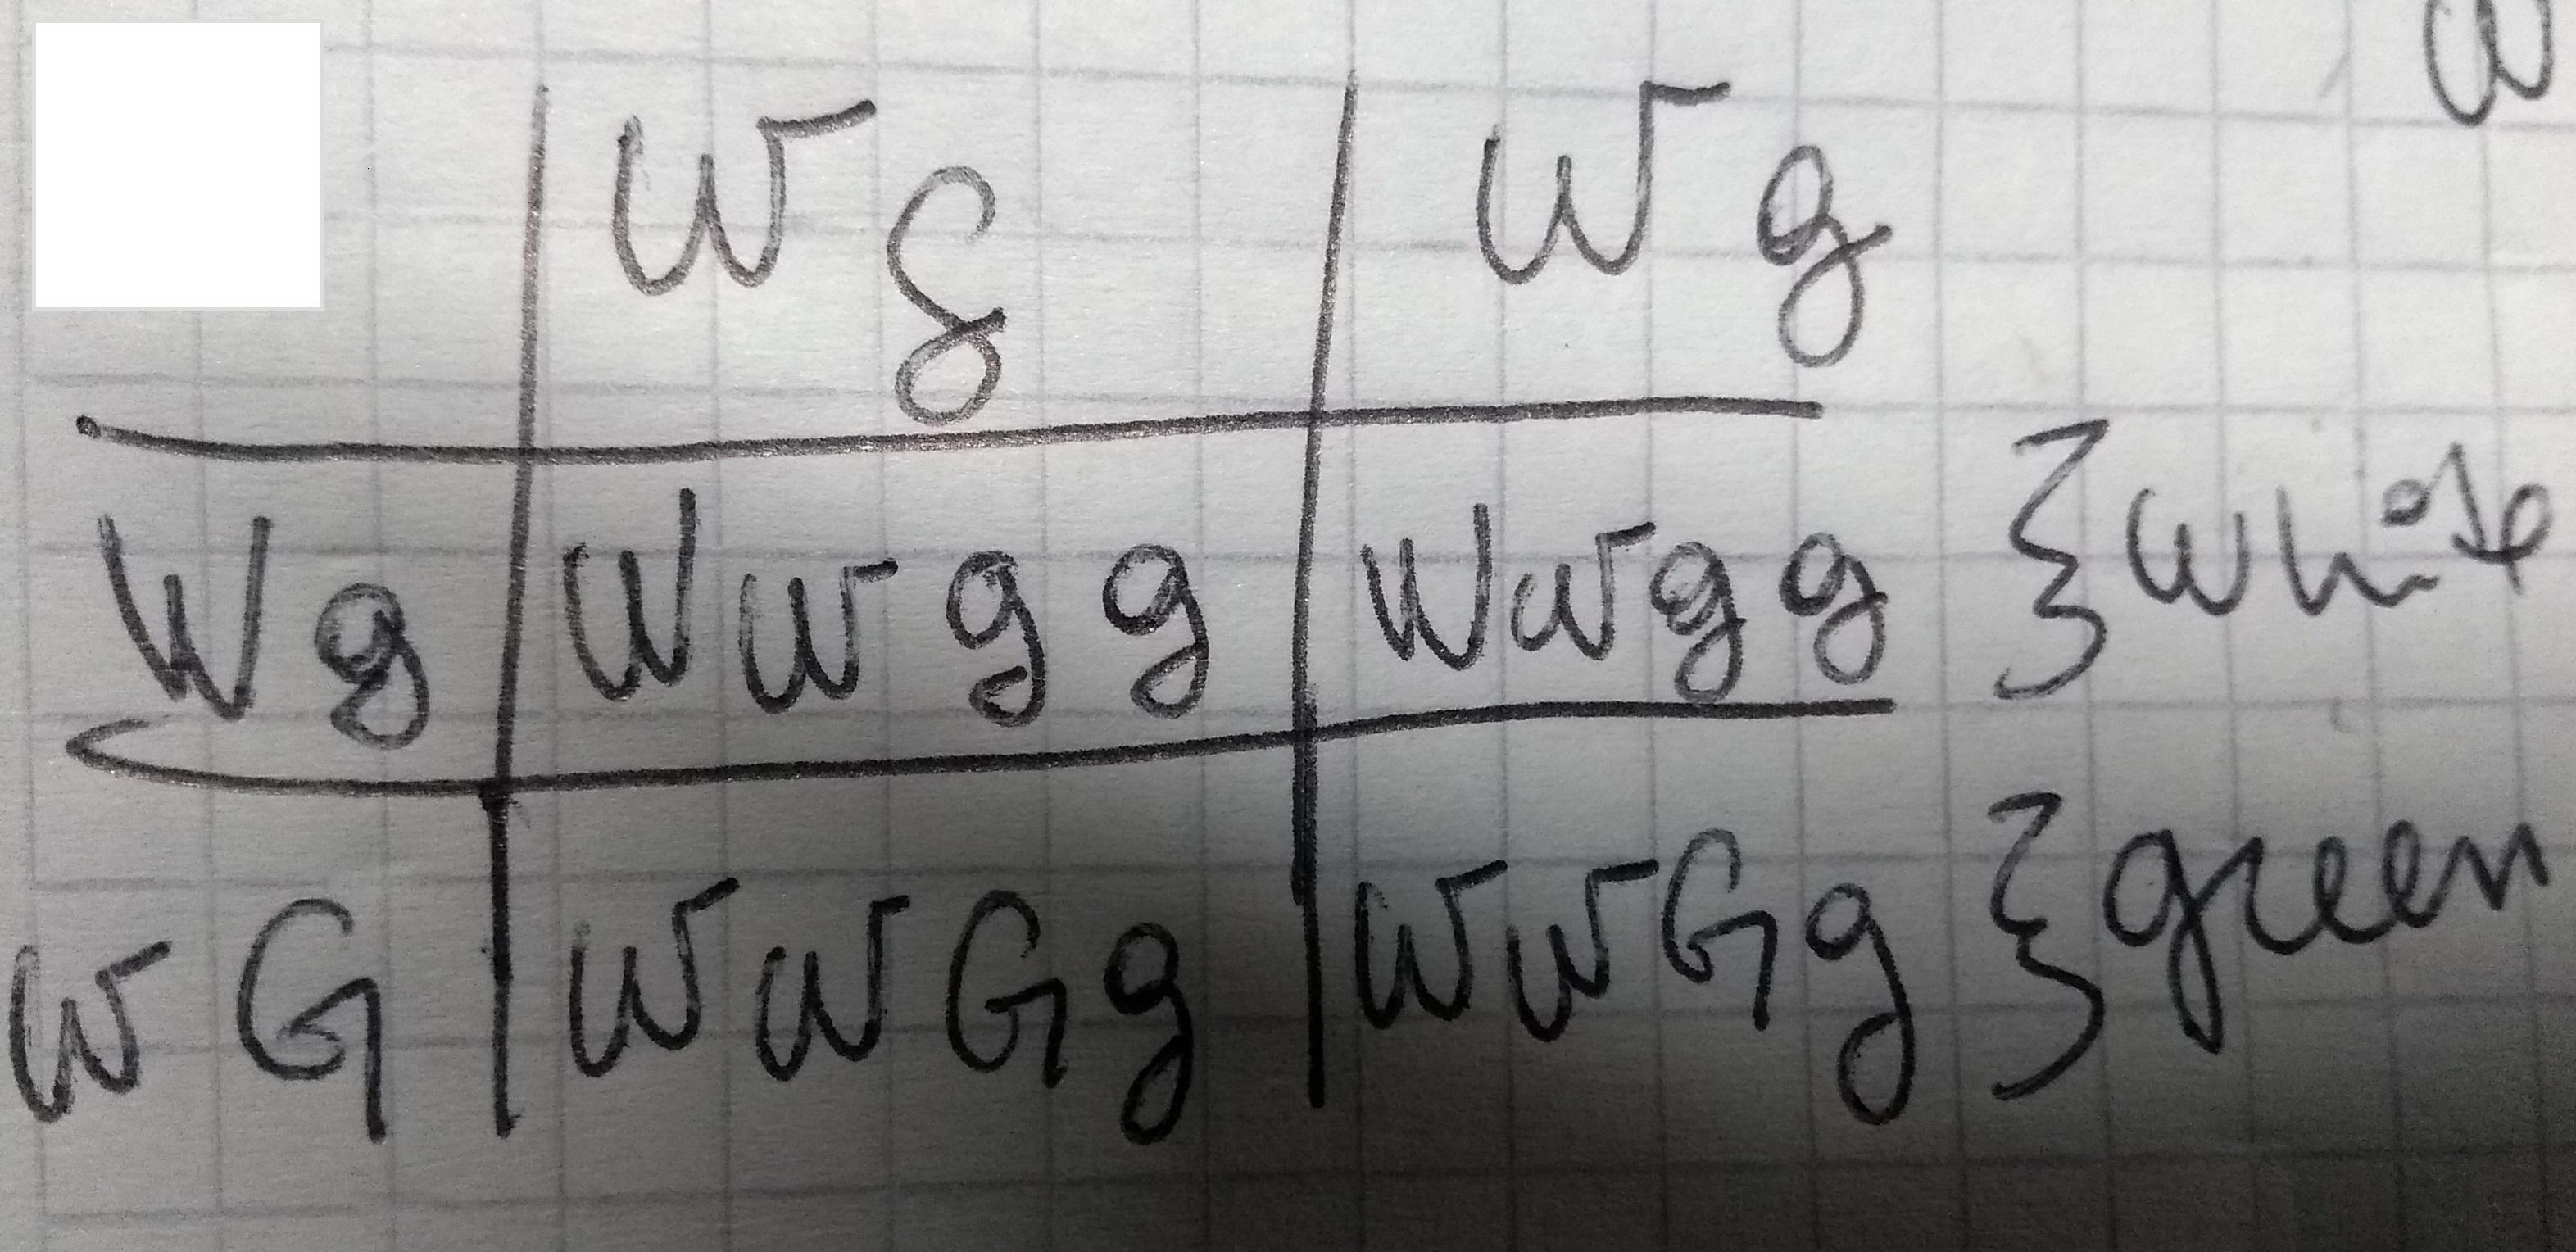 w g w g
W g W w g g W w g g } white
w G w w G g w w G g } green